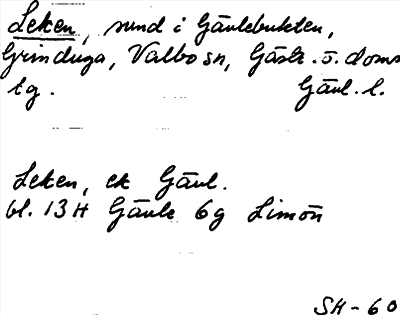 Leken, sund i Gävlebukten,
Grinduga, Valbo sn, Gästr. ö. doms
tg. Gävl. l.
Leken, ek Gävl.
bl. 13H Gävle 6g Limön
SH-60